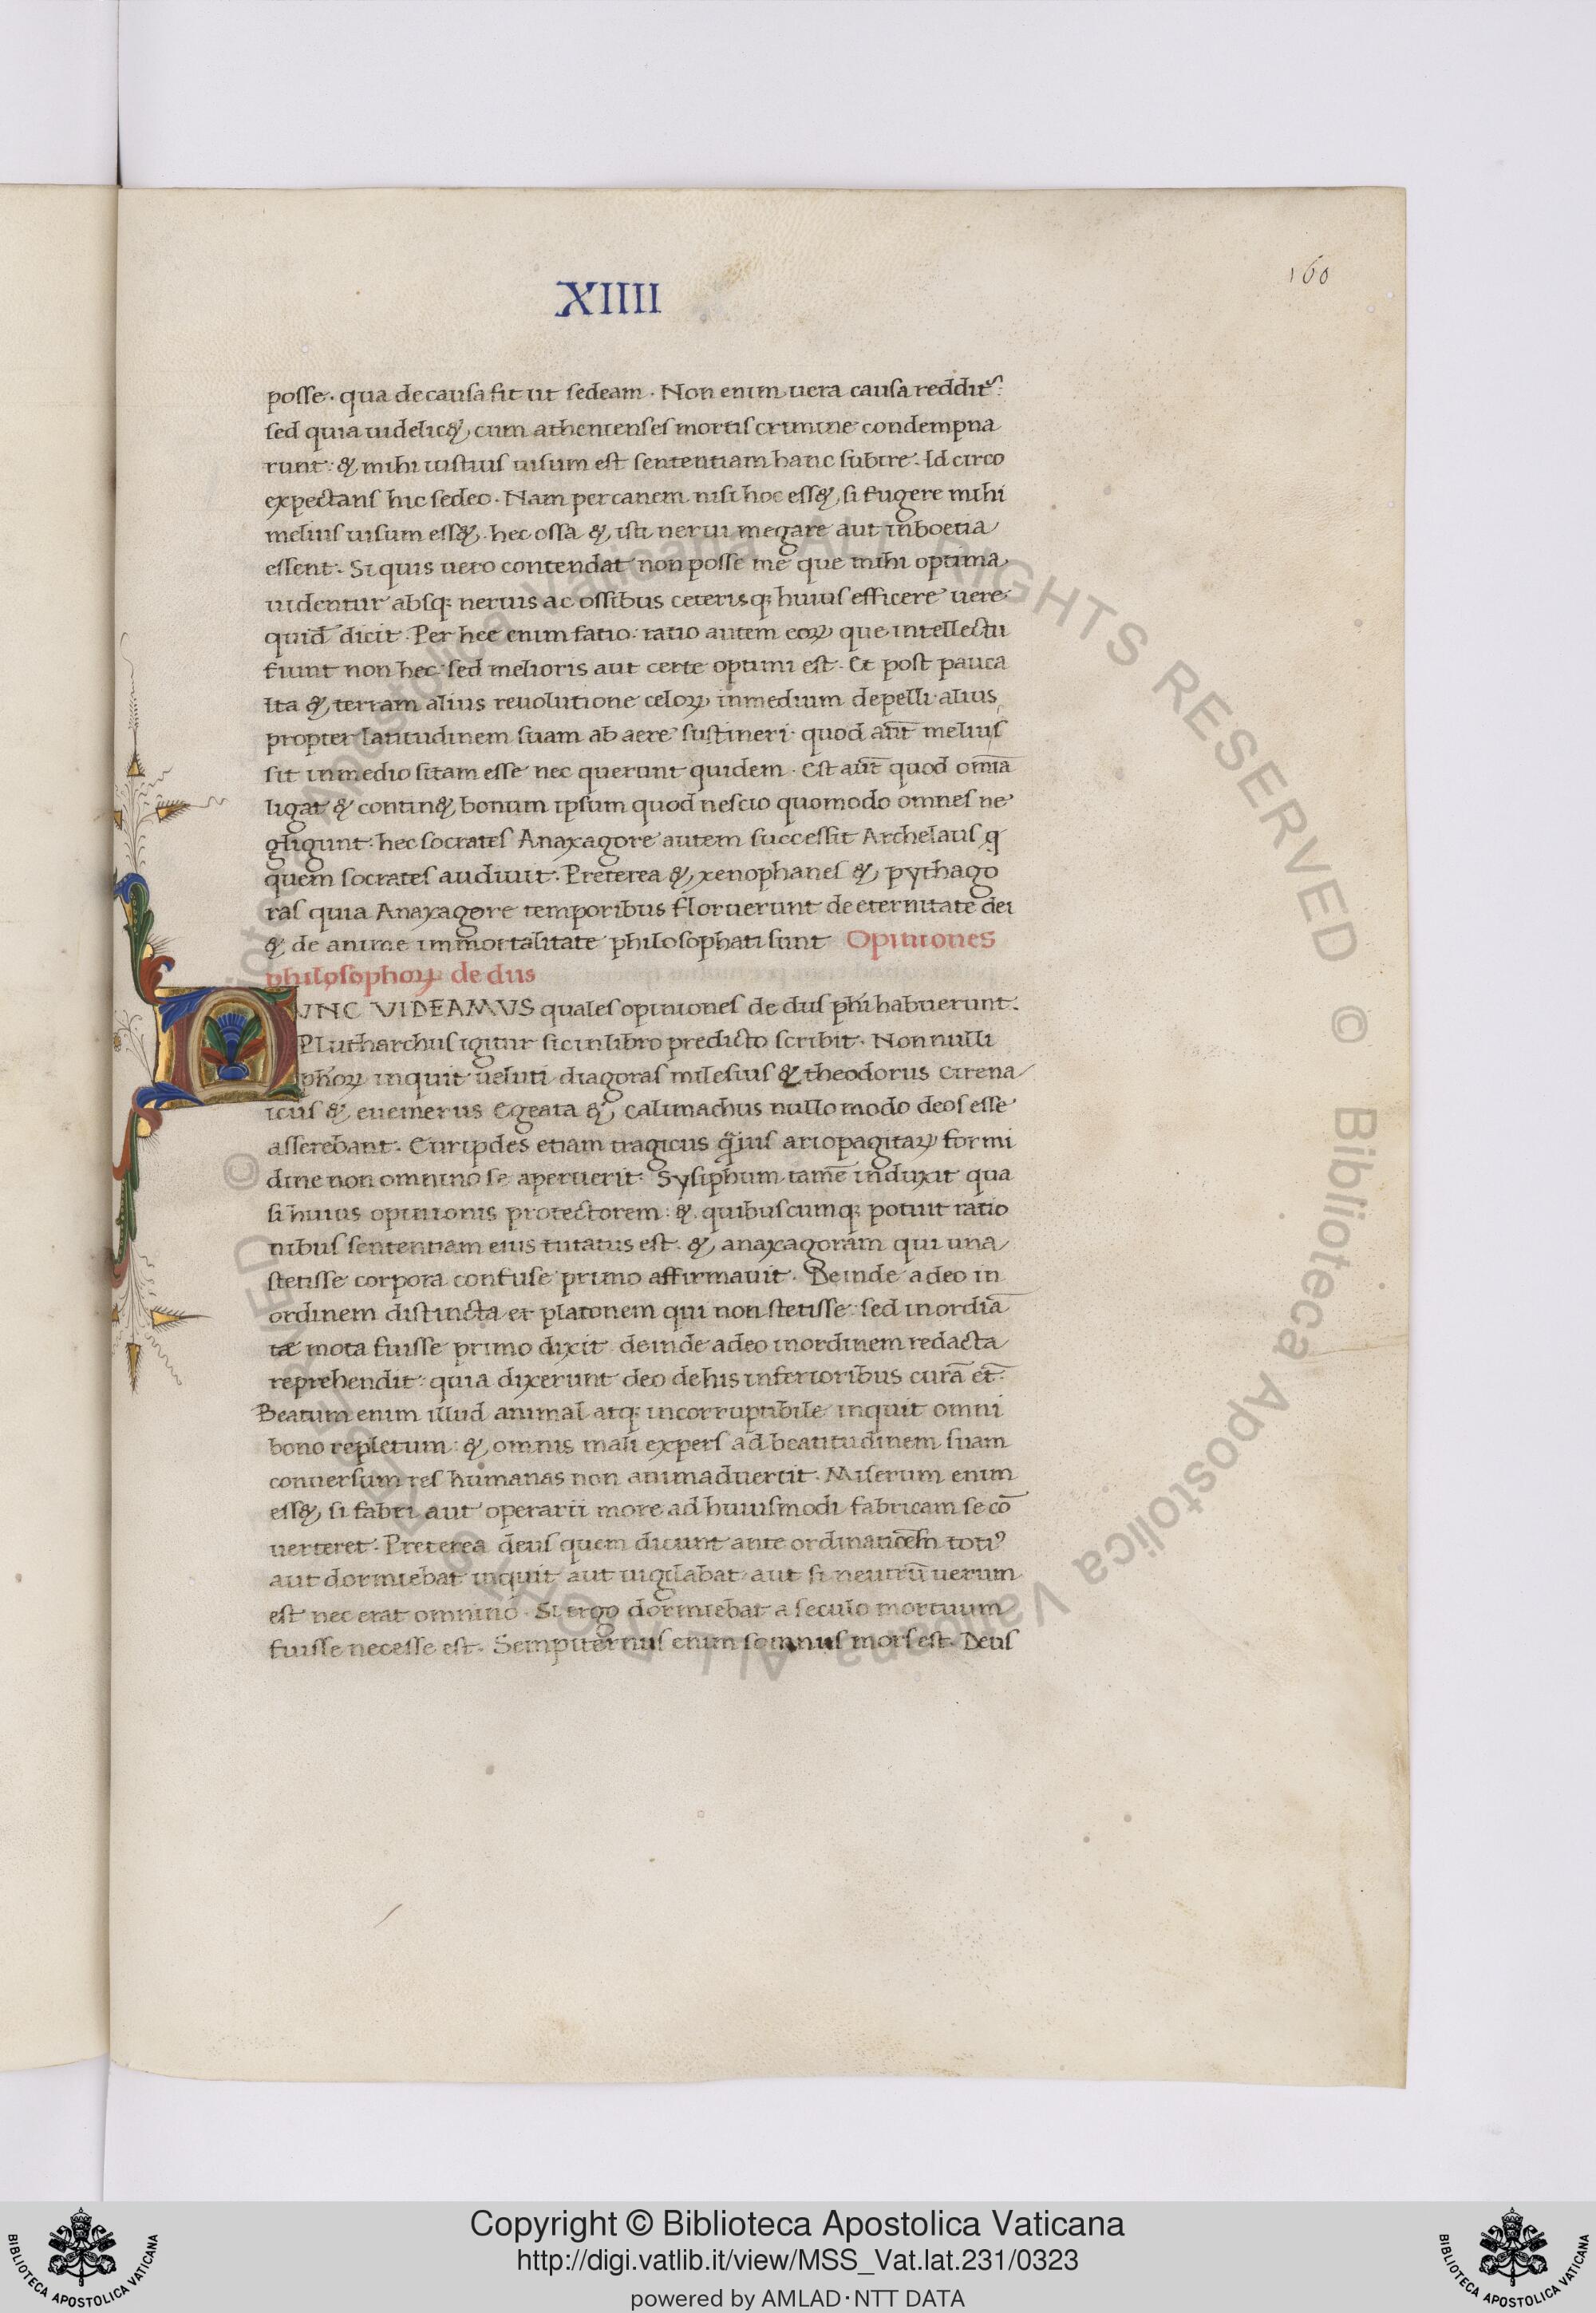 160
XIIII
posse· qua de causa fit ut sedeam · Non enim uera causa reddit᷒:
sed quia uidelic&, cum athenienses mortis crimine condempna
runt: & mihi iustius uisum est sententiam hanc subire. Id circo
expectans hic sedeo · Nam per canem nisi hoc ess&, si fugere mihi
melius uisum ess&. hec ossa & isti nerui megare aut in boetia
essent· Si quis uero contendat non posse me que mihi optima
uidentur absq; neruis ac ossibus ceterisq; huius efficere uere
quid dicit · Per hec enim fatio: ratio autem eoꝝ que intellectu
fiunt non hec: sed melioris aut certe optimi est · Et post pauca
Ita & terram alius reuolutione celoꝝ in medium depelli· alius
propter latitudinem suam ab aere sustineri· quod aut̅ melius
sit in medio sitam esse nec querunt quidem · Est aut̅ quod om̅ia
ligat & contin& bonum ipsum quod nescio quomodo omnes ne
gligunt: hec socrates Anaxagore autem successit Archelaus q̇
quem socrates audiuit· Preterea &, xenophanes &, pythago
ras quia Anaxagore temporibus floruerunt de eternitate dei
& de anime immortalitate philosophati sunt Opiniones
philosophoꝝ de diis
NVNC VIDEAMVS quales opiniones de diis phi̅ habuerunt:
Plutharchus igitur sic in libro predicto scribit· Non nulli
ph̅oꝝ inquit ueluti diagoras milesius & theodorus cirena
icus & euemerus Egeata &, calimachus nullo modo deos esse
asserebant· Euripdes etiam tragicus q̅uis ariopagitaꝝ formi
dine non omnino se aperuerit· Sysiphum tame̅ induxit qua
si huius opinionis protectorem: &, quibuscumq; potuit ratio
nibus sententiam eius tutatus est· &, anaxagoram qui una
stetisse corpora confuse primo affirmauit · Deinde a deo in
ordinem distincta et platonem qui non stetisse: sed inordi̅a
te mota fuisse primo dixit deinde a deo in ordinem redacta
reprehendit: quia dixerunt deo de his inferioribus cura̅ et̅:
Beatum enim illud animal atq; incorruptibile inquit omni
bono repletum: &, omnis mali expers ad beatitudinem suam
conuersum res humanas non animaduertit· Miserum enim
ess&, si fabri aut operarii more ad huiusmodi fabricam se co̅
uerteret· Preterea deus quem dicunt ante ordinatio̅em toti᾽
aut dormiebat inquit aut uigilabat· aut si neutru̅ uerum
est nec erat omnino· Si ergo dormiebat a seculo mortuum
fuisse necesse est· Sempiternus enim somnus mors est· Deus
Copyright © Biblioteca Apostolica Vaticana
http://digi.vatlib.it/view/MSS_Vat.lat.231/0323
powered by AMLAD·NTT DATA